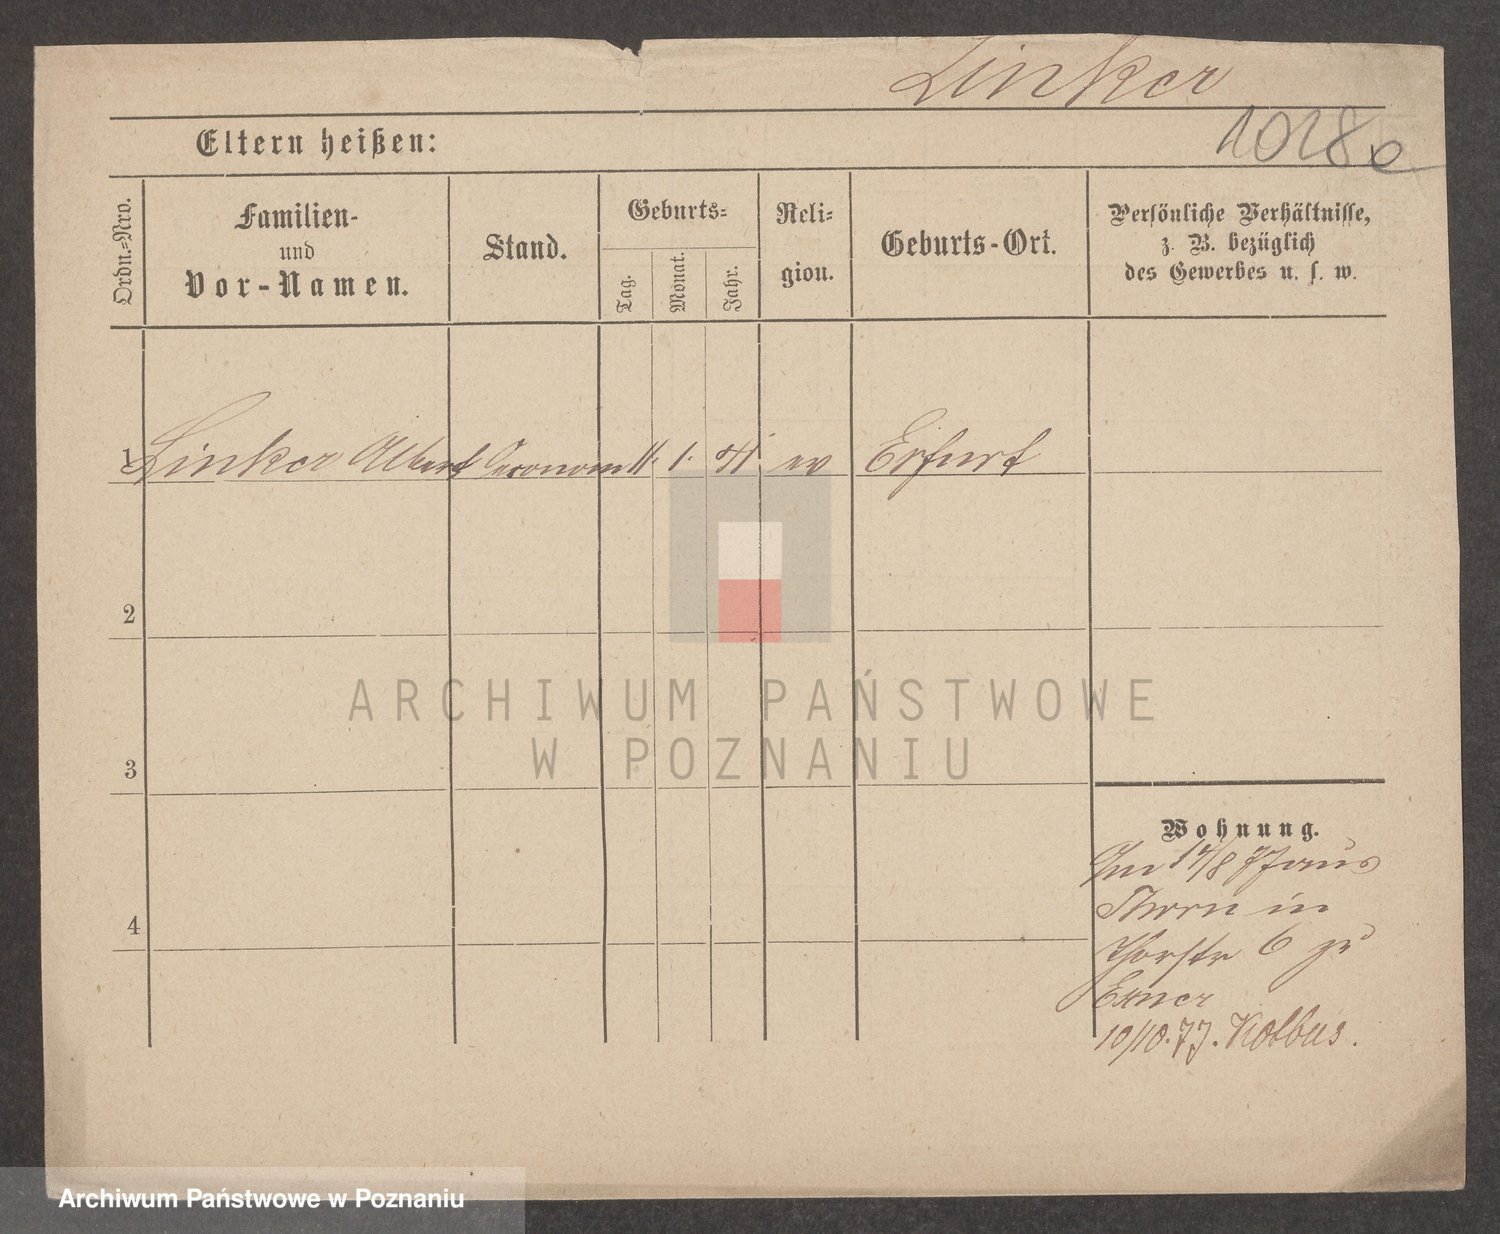 Linker
1018
Eltern heißen:
Ordn.=Nro.
Familien-
und
Vor-Namen.
Stand.
Geburts=
Tag.
Monat.
Jahr.
Reli=
gion.
Geburts-Ort.
Persönliche Verhältnisse,
z. B. bezüglich
des Gewerbes u. s. w.
1 Linker Albert Oeconom 11. 1. 41 ev Erfurt
2
3
4
Wohnung.
Im 17/8 77 aus
Thorn in
6 zu
Exner
10/10.77. Kolbus.
ARCHIWUM PAŃSTWOWE
W POZNANIU
Archiwum Państwowe w Poznaniu